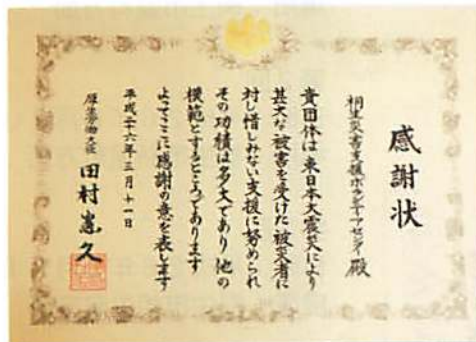 感謝状
桐生災害支援ボランティアセンター殿
貴団体は東日本大震災により
甚大な被害を受けた被災者に
対し惜しみない支援に努められ
その功績は多大であり他の
模範とするところであります
よってここに感謝の意を表します
平成二十六年三月十一日
厚生労働大臣 田村憲久